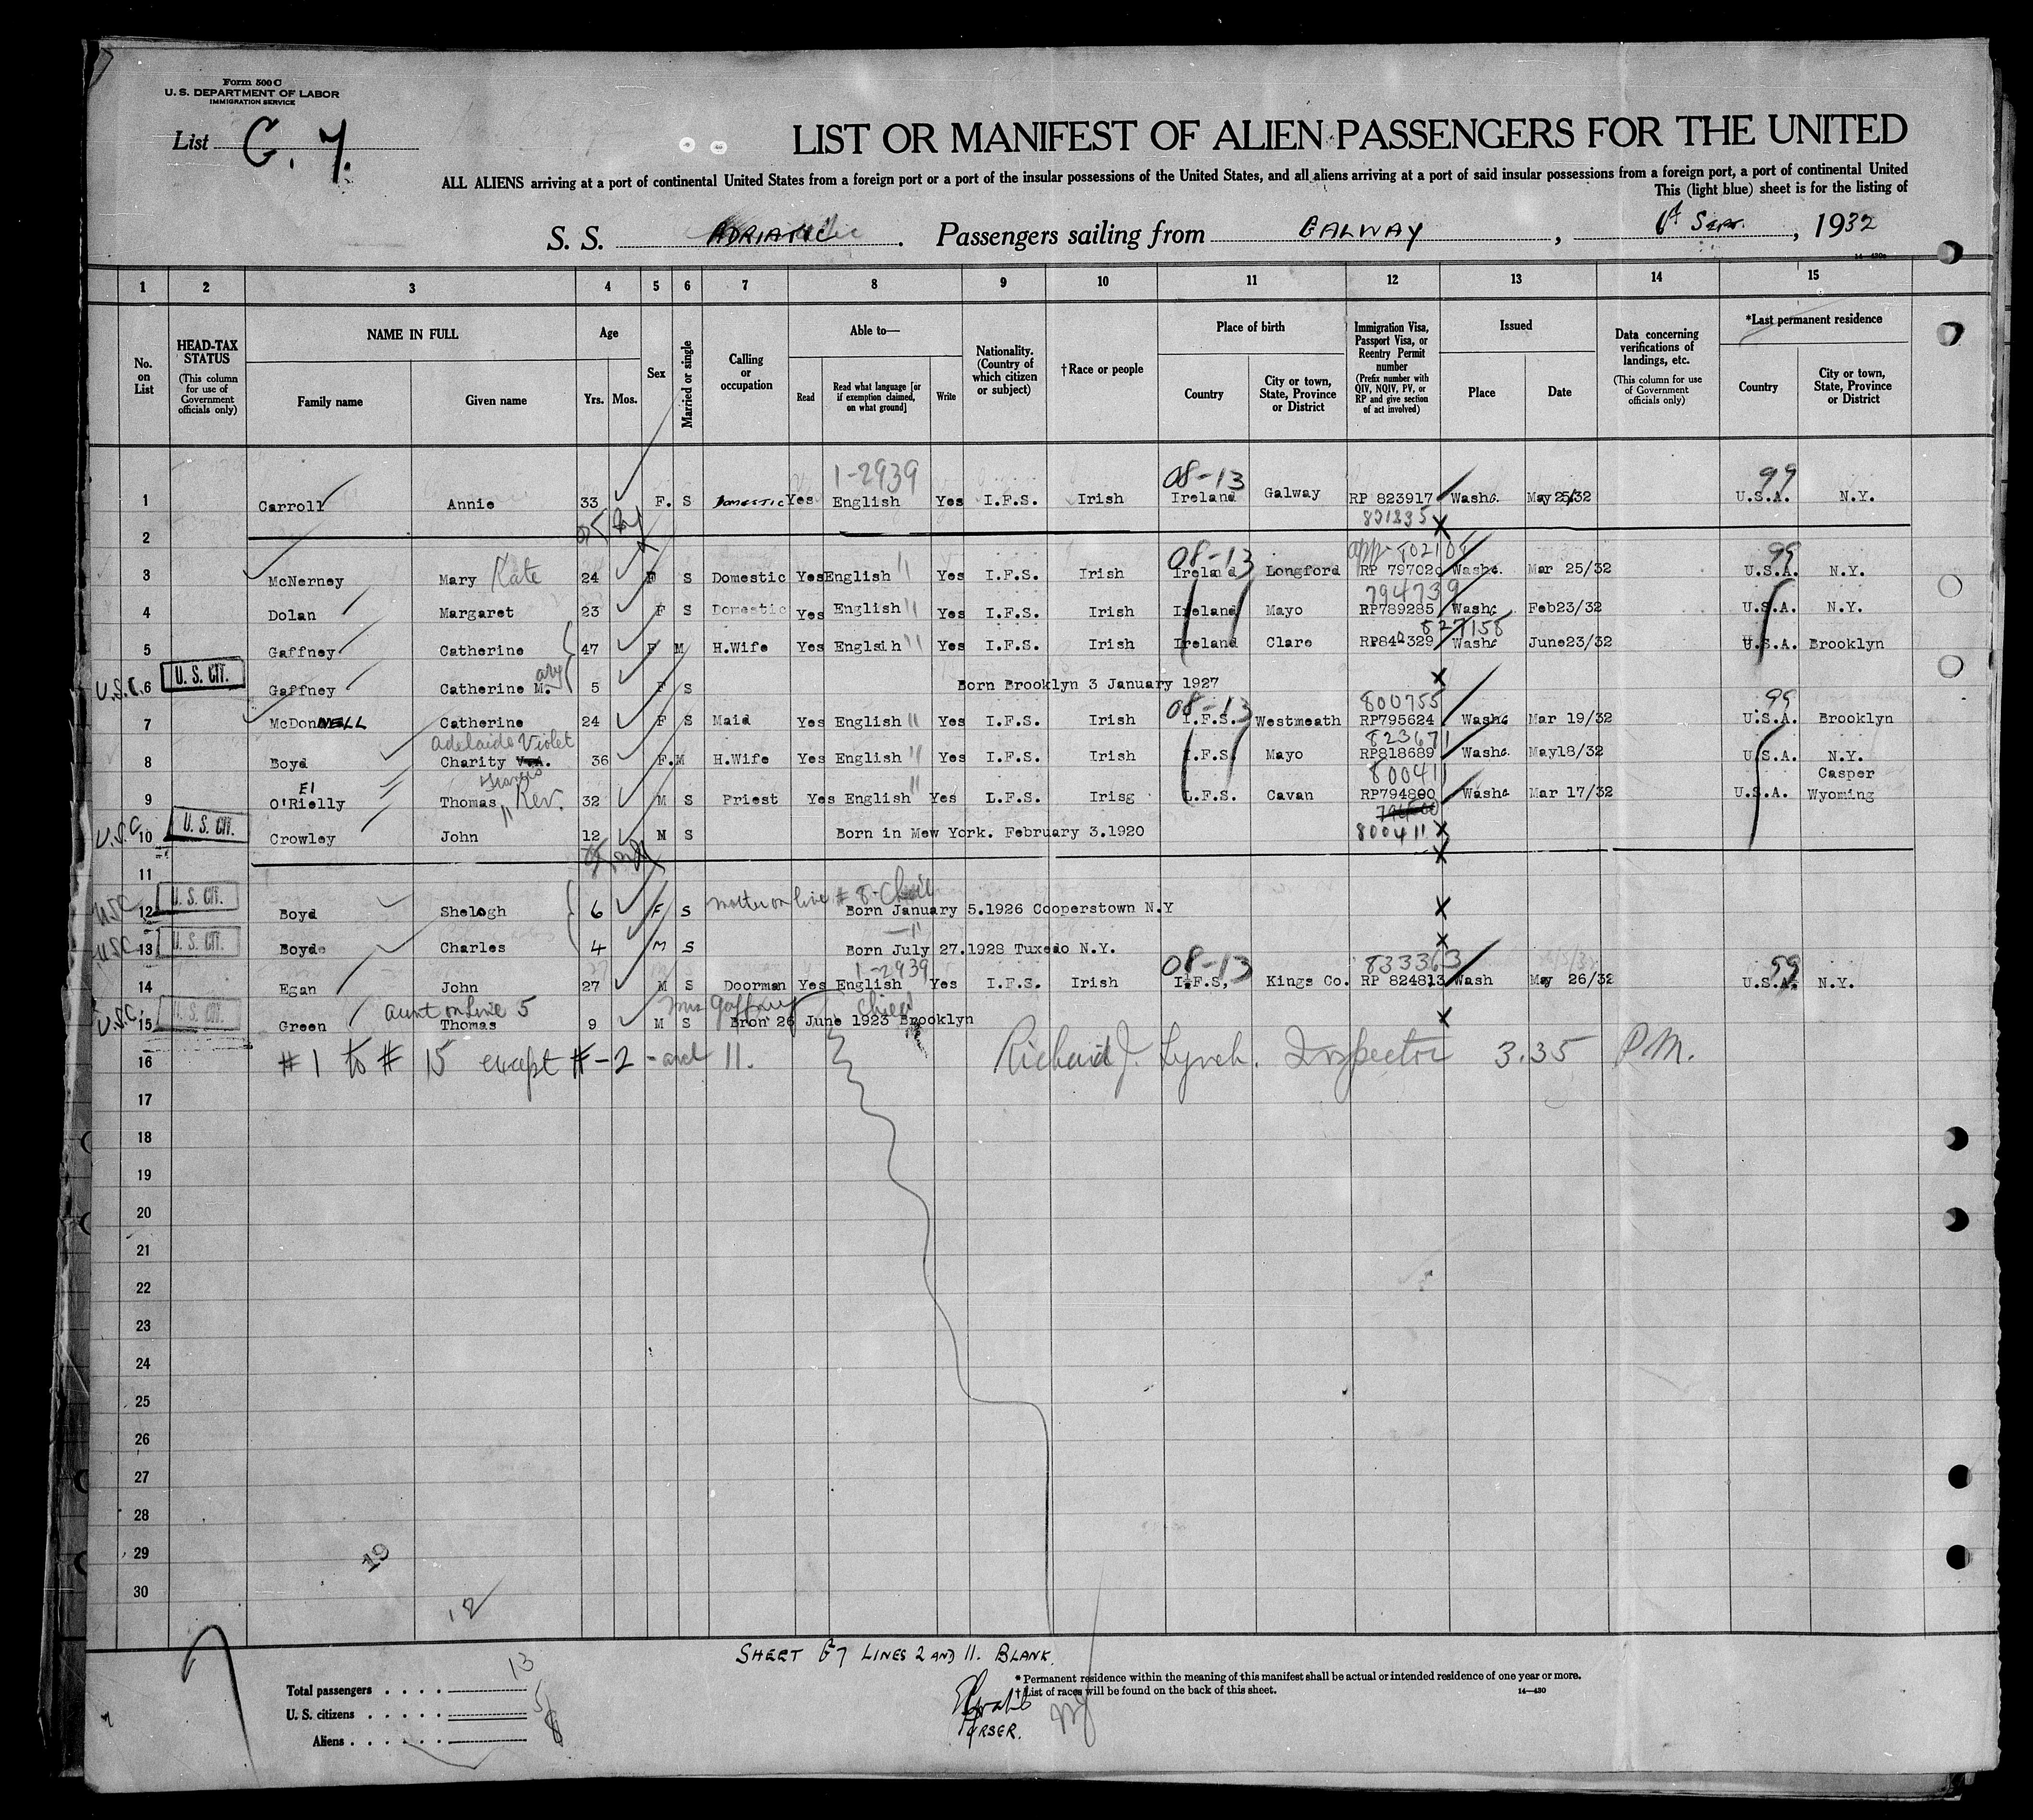 Form 500 C
U. S. DEPARTMENT OF LABOR
IMMIGRATION SERVICE
List G. 7.
LIST OR MANIFEST OF ALIEN PASSENGERS FOR THE UNITED
ALL ALIENS arriving at a port of continental United States from a foreign port or a port of the insular possessions of the United States, and all aliens arriving at a port of said insular possessions from a foreign port, a port of continental United
This (light blue) sheet is for the listing of
S. S. ADRIATIC . Passengers sailing from GALWAY , , 1932
1 2 3 4 5 6 7 8 9 10 11 12 13 14 15
No. on List
HEAD-TAX STATUS (This column for use of Government officials only)
NAME IN FULL Family name Given name
Age Yrs. Mos.
Sex
Married or single
Calling or occupation
Able to— Read Read what language [or if exemption claimed, on what ground] Write
Nationality. (Country of which citizen or subject)
†Race or people
Place of birth Country City or town, State, Province or District
Immigration Visa, Passport Visa, or Reentry Permit number (Prefix number with QIV, NQIV, PV, or RP and give section of act involved)
Issued Place Date
Data concerning verifications of landings, etc. (This column for use of Government officials only)
*Last permanent residence Country City or town, State, Province or District
1-2939 08-13 99
1 Carroll Annie 33 F. S DOMESTIC Yes English Yes I.F.S. Irish Ireland Galway RP 823917 Washc. May 25/32 U.S.A. N.Y.
831835
2
08-13 99
3 McNerney Mary Kate 24 F S Domestic Yes English " Yes I.F.S. Irish Ireland Longford RP 797020 Washc. Mar 25/32 U.S.A. N.Y.
794739
4 Dolan Margaret 23 F S Domestic Yes English " Yes I.F.S. Irish Ireland Mayo RP789285 Washc Feb23/32 U.S.A. N.Y.
827158
5 Gaffney Catherine 47 F M H.Wife Yes Englsih " Yes I.F.S. Irish Ireland Clare Washc June23/32 U.S.A. Brooklyn
U.S.C. 6 U. S. CIT. Gaffney Catherine M.ary 5 F S Born Brooklyn 3 January 1927
800755 08-13 99
7 McDonNELL Catherine 24 F S Maid Yes English " Yes I.F.S. Irish I.F.S. Westmeath RP795624 Washc Mar 19/32 U.S.A. Brooklyn
Adelaide Violet 823671
8 Boyd Charity 36 F. M H.Wife Yes English " Yes I.F.S. Irish I.F.S. Mayo RP818689 Washc. May18/32 U.S.A. N.Y.
800411 Casper
9 O'Rielly EI Thomas Rev. 32 M S Priest Yes English " Yes L.F.S. Irisg L.F.S. Cavan RP794800 Washc Mar 17/32 U.S.A. Wyoming
U.S.C 10 U. S. CIT. Crowley John 12 M S Born in Mew York. February 3.1920 800411
11
mother on line # 8
USC 12 U. S. CIT. Boyd Shelogh 6 F S Born January 5.1926 Cooperstown N.Y
USC 13 U. S. CIT. Boyd Charles 4 M S Born July 27.1928 Tuxedo N.Y.
1-2939 08-13 833363 99
14 Egan John 27 M S Doorman Yes English Yes I.F.S. Irish I.F.S, Kings Co. RP 824813 Wash May 26/32 U.S.A. N.Y.
aunt on Line 5 Mrs Gaffney
U.S.C. 15 U. S. CIT. Green Thomas 9 M S Bron 26 June 1923 Brooklyn
16 #1 to # 15 except #-2 - and 11. Richard J. Lynch. Inspector 3.35 P.M.
17
18
19
20
21
22
23
24
25
26
27
28
29
30
19
12
SHEET G7 LINES 2 AND 11. BLANK.
Total passengers 13
U. S. citizens 5
Aliens 8
* Permanent residence within the meaning of this manifest shall be actual or intended residence of one year or more.
† List of races will be found on the back of this sheet.
14—430
PURSER.